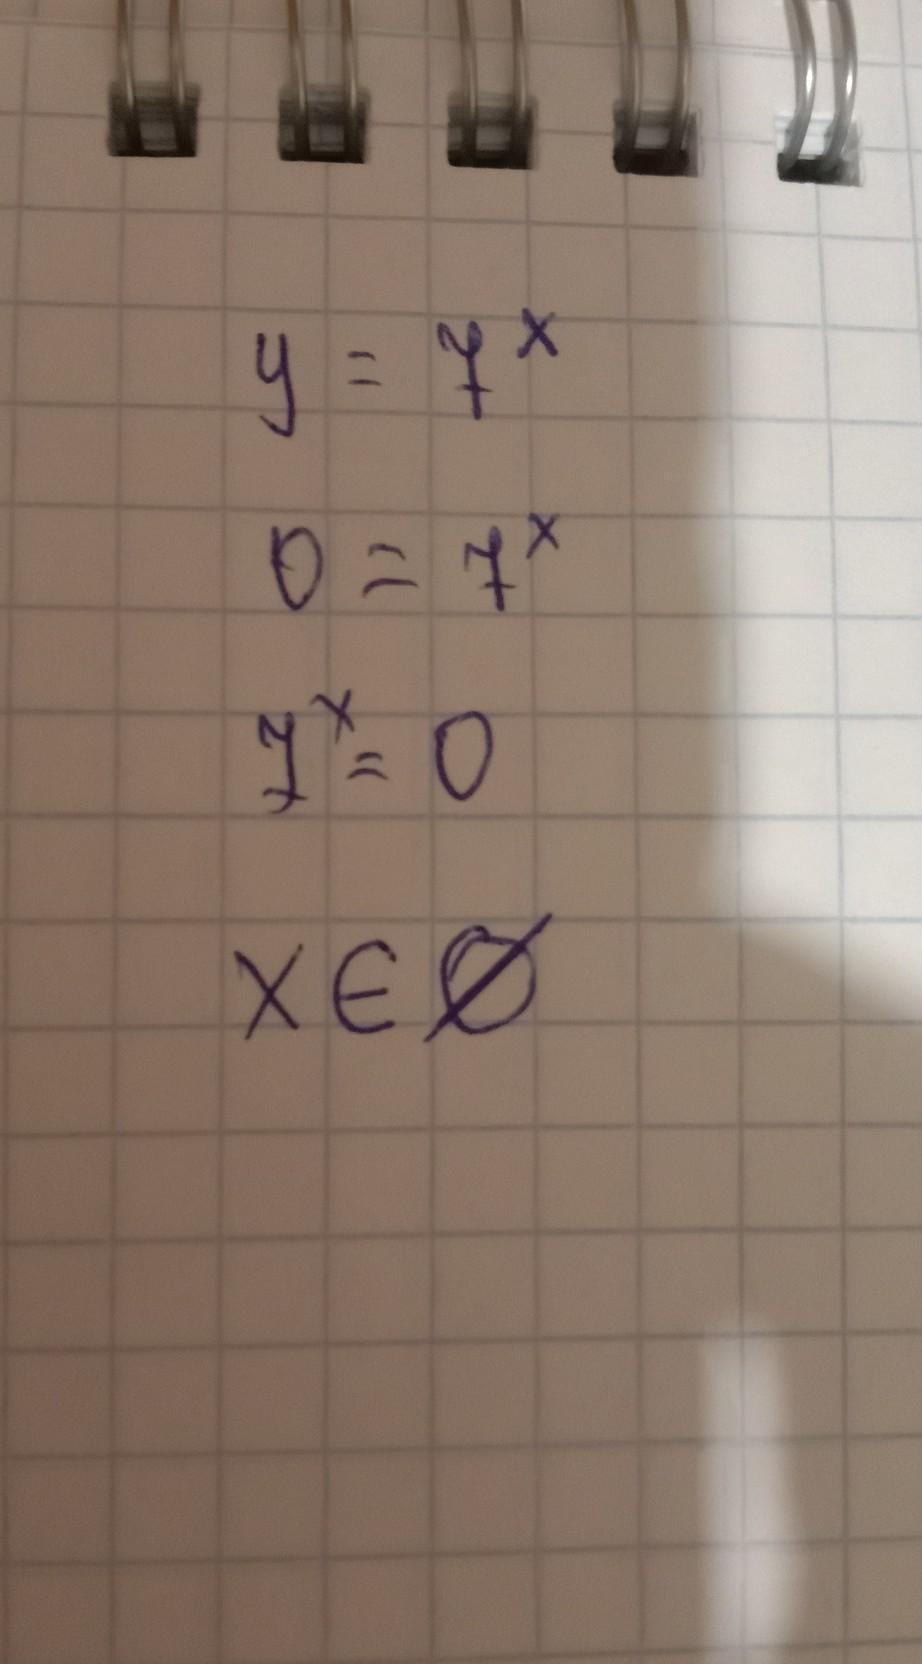 y = 7^x
0 = 7^x
7^x = 0
x ∈ ∅